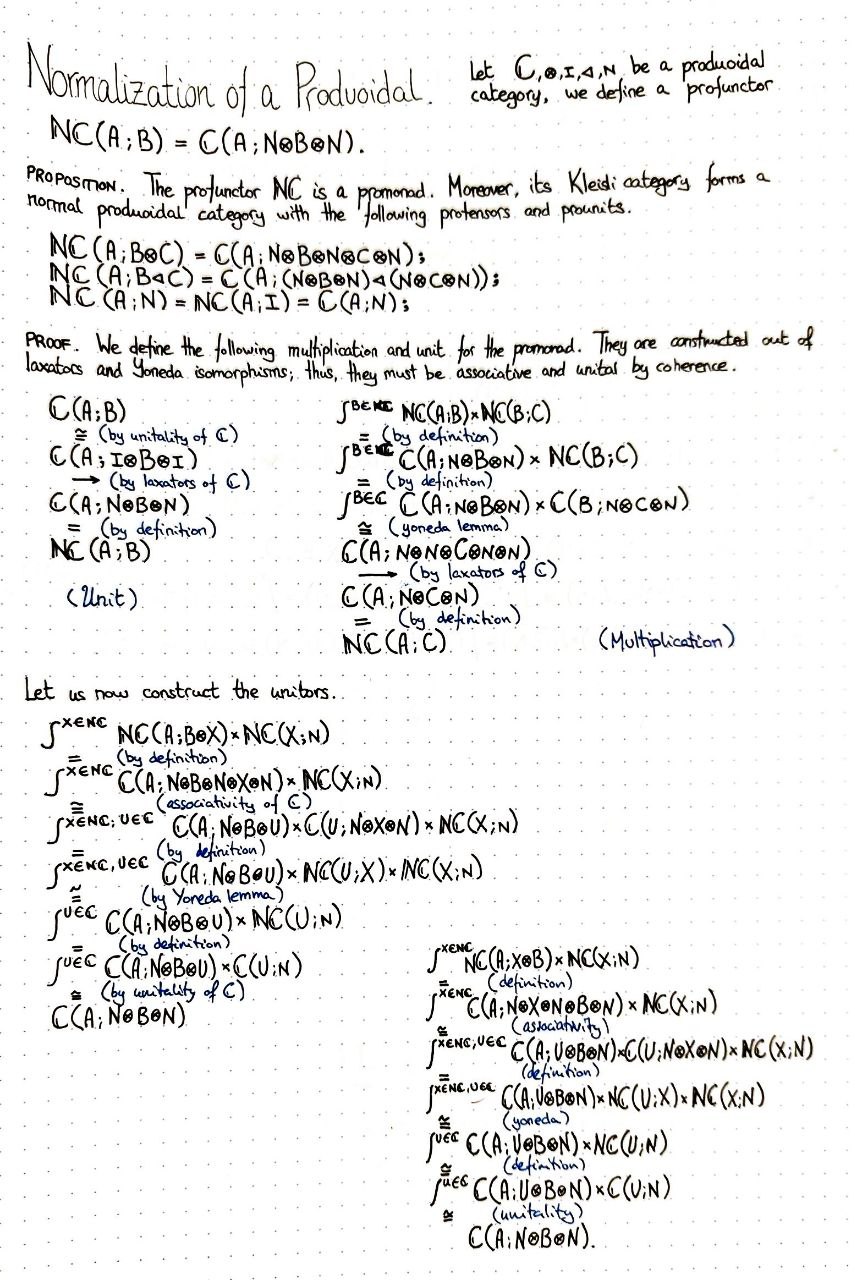 Normalization of a Produoidal.
Let ℂ,⊗,I,◁,N be a produoidal
category, we define a profunctor
ℕℂ(A;B) = ℂ(A;N⊗B⊗N).
PROPOSITION. The profunctor ℕℂ is a promonad. Moreover, its Kleisli category forms a
normal produoidal category with the following protensors and prounits.
ℕℂ(A;B⊗C) = ℂ(A;N⊗B⊗N⊗C⊗N);
ℕℂ(A;B◁C) = ℂ(A;(N⊗B⊗N)◁(N⊗C⊗N));
ℕℂ(A;N) = ℕℂ(A;I) = ℂ(A;N);
PROOF. We define the following multiplication and unit for the promonad. They are constructed out of
laxators and Yoneda isomorphisms; thus, they must be associative and unital by coherence.
ℂ(A;B)
≅ (by unitality of ℂ)
ℂ(A;I⊗B⊗I)
→ (by laxators of ℂ)
ℂ(A;N⊗B⊗N)
= (by definition)
ℕℂ(A;B)
(Unit)
∫^B∈ℕℂ ℕℂ(A;B)×ℕℂ(B;C)
= (by definition)
∫^B∈ℕℂ ℂ(A;N⊗B⊗N) × ℕℂ(B;C)
= (by definition)
∫^B∈ℂ ℂ(A;N⊗B⊗N) × ℂ(B;N⊗C⊗N)
≅ (yoneda lemma)
ℂ(A;N⊗N⊗C⊗N⊗N)
→ (by laxators of ℂ)
ℂ(A;N⊗C⊗N)
= (by definition)
ℕℂ(A;C)
(Multiplication)
Let us now construct the unitors.
∫^X∈ℕℂ ℕℂ(A;B⊗X)×ℕℂ(X;N)
= (by definition)
∫^X∈ℕℂ ℂ(A;N⊗B⊗N⊗X⊗N)×ℕℂ(X;N)
≅ (associativity of ℂ)
∫^X∈ℕℂ;U∈ℂ ℂ(A;N⊗B⊗U)×ℂ(U;N⊗X⊗N)×ℕℂ(X;N)
= (by definition)
∫^X∈ℕℂ,U∈ℂ ℂ(A;N⊗B⊗U)×ℕℂ(U;X)×ℕℂ(X;N)
≅ (by Yoneda lemma)
∫^U∈ℂ ℂ(A;N⊗B⊗U)×ℕℂ(U;N)
= (by definition)
∫^U∈ℂ ℂ(A;N⊗B⊗U)×ℂ(U;N)
≅ (by unitality of ℂ)
ℂ(A;N⊗B⊗N)
∫^X∈ℕℂ ℕℂ(A;X⊗B)×ℕℂ(X;N)
= (definition)
∫^X∈ℕℂ ℂ(A;N⊗X⊗N⊗B⊗N)×ℕℂ(X;N)
≅ (associativity)
∫^X∈ℕℂ,U∈ℂ ℂ(A;U⊗B⊗N)×ℂ(U;N⊗X⊗N)×ℕℂ(X;N)
= (definition)
∫^X∈ℕℂ,U∈ℂ ℂ(A;U⊗B⊗N)×ℕℂ(U;X)×ℕℂ(X;N)
≅ (yoneda)
∫^U∈ℂ ℂ(A;U⊗B⊗N)×ℕℂ(U;N)
≅ (definition)
∫^U∈ℂ ℂ(A;U⊗B⊗N)×ℂ(U;N)
≅ (unitality)
ℂ(A;N⊗B⊗N).